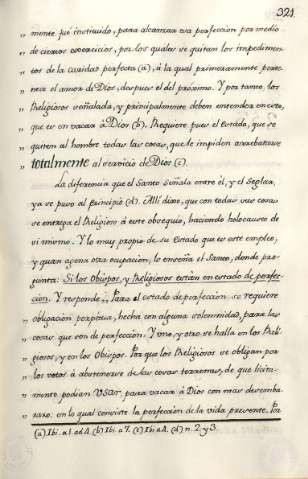 321
„ mente fué instituido, para alcanzar esa perfeccion por medio
„ de ciertos exercicios, por los quales se quitan los impedimen-
„ tos de la caridad perfecta (a), á la qual primeramente perte-
„ nece el amor de Dios, despues el del próximo. Y por tanto, los
„ Religiosos señalada, y principalmente deben entender en esto,
„ que es en vacar á Dios (b). Requiere pues el estado, que se
„ quiten al hombre todas las cosas, que le impiden arrebatarse
totalmente al servicio de Dios (c).
La diferencia que el Santo señala entre él, y el Seglar,
ya se puso al principio (d). Allí dixo, que con todas sus cosas
se entrega el Religioso á este obsequio, haciendo holocausto de
sí mismo. Y lo muy propio de su Estado que es este empleo,
y quan agena otra ocupacion, lo enseña el Santo, donde pre-
gunta: Si los Obispos, y Religiosos están en estado de perfec-
cion. Y responde: „ Para el estado de perfeccion, se requiere
„ obligacion perpétua, hecha con alguna solemnidad, para las
„ cosas que son de perfeccion. Y uno, y otro se halla en los Reli-
„ giosos, y en los Obispos. Porque los Religiosos se obligan por
„ los votos á abstenerse de las cosas terrenas, de que licita-
„ mente podian usar, para vacar á Dios con mas desemba-
„ razo: en lo qual consiste la perfeccion de la vida presente. Por
(a) Ibi. a.1. ad 4. (b) Ibi. a 7. (c) Ibi. a 4. (d) n. 2. y 3.